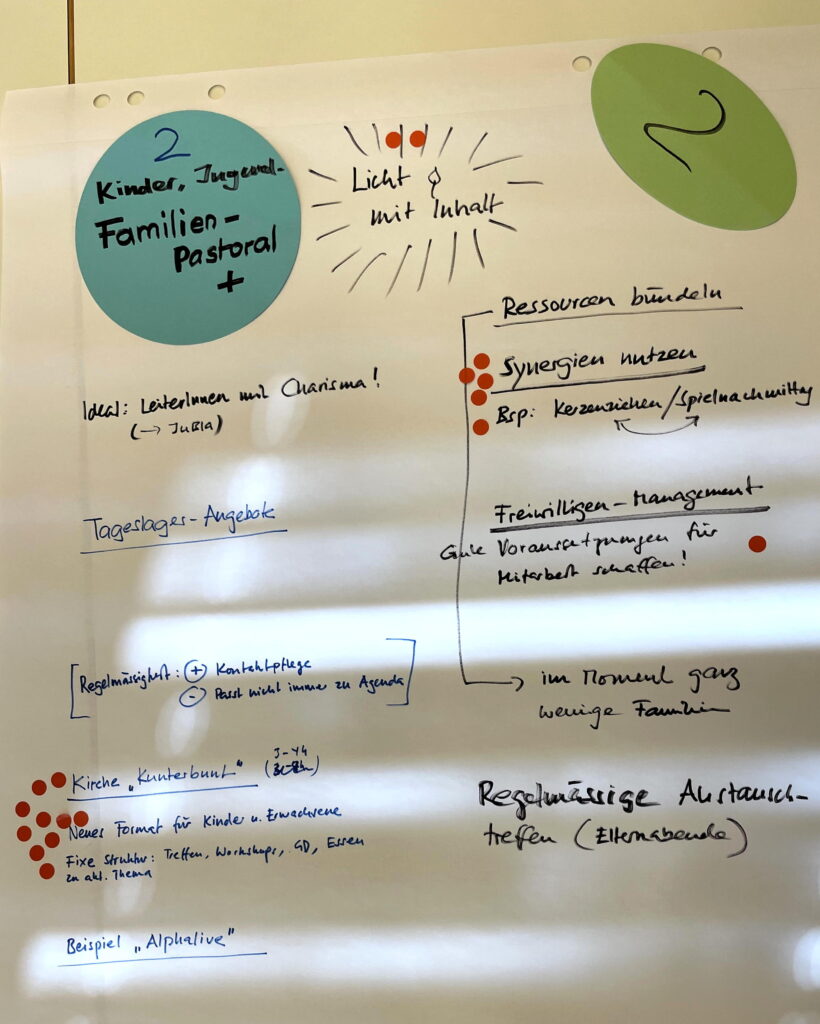 2
Kinder, Jugend-
Familien-
Pastoral
+
Licht
mit Inhalt
2
Ideal: LeiterInnen mit Charisma!
(→ JuBla)
Tageslager-Angebote
[Regelmässigkeit: + Kontaktpflege
- Passt nicht immer zu Agenda]
Kirche „Kunterbunt"
Neues Format für Kinder u. Erwachsene
Fixe Struktur: Treffen, Workshops, GD, Essen
zu akt. Thema
Beispiel „Alphalive"
Ressourcen bündeln
Synergien nutzen
Bsp: Kerzenziehen/Spielnachmittag
Freiwilligen-Management
Gute Voraussetzungen für
Mitarbeit schaffen!
→ im Moment ganz
wenige Familien
Regelmässige Austausch-
treffen (Elternabende)